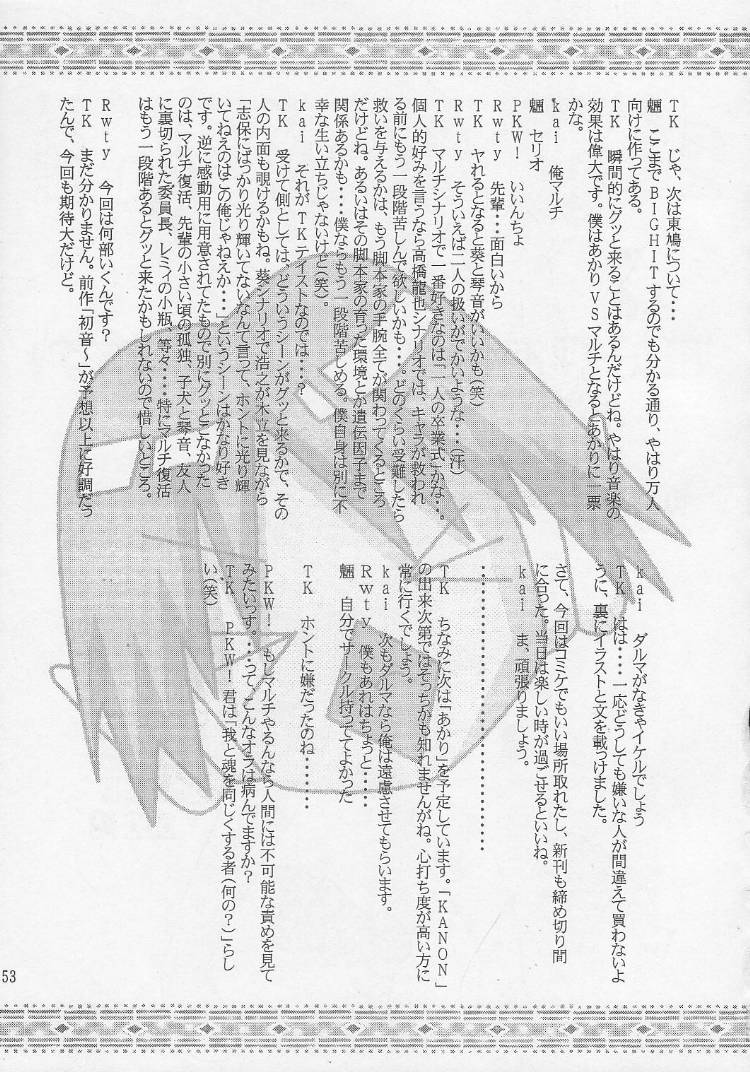 TK　じゃ、次は東鳩について・・・
魎　ここまでBIGHITするのでも分かる通り、やはり万人
向けに作ってある。
TK　瞬間的にグッと来ることはあるんだけどね。やはり音楽の
効果は偉大です。僕はあかりVSマルチとなるとあかりに一票
かな。
kai　俺マルチ
魎　セリオ
PKW!　いいんちょ
Rwty　先輩・・・面白いから
TK　ヤれるとなると葵と琴音がいいかも(笑)
Rwty　そういえば二人の扱いがでかいような・・・・(汗)
TK　マルチシナリオで一番好きなのは「二人の卒業式」かな・・。
個人的好みを言うなら高橋龍也シナリオでは、キャラが救われ
る前にもう一段階苦しんで欲しいかも・・・。どのくらい受難したら
救いを与えるかは、もう脚本家の手腕全てが関わってくるところ
だけどね。あるいはその脚本家の育った環境とか遺伝因子まで
関係あるかも・・・・僕ならもう一段階苦しめる。僕自身は別に不
幸な生い立ちじゃないけど(笑)。
kai　それがTKテイストなのでは・・・・？
TK　受けて側としては、どういうシーンがグッと来るかで、その
人の内面も覗けるかもね。葵シナリオで浩之が木立を見ながら
「志保にはっかり光り輝いてないなんて言って、ホントに光り輝
いてねえのはこの俺じゃねえか・・・」というシーンはかなり好き
です。逆に感動用に用意されてたもので別にグッとこなかった
のは、マルチ復活、先輩の小さい頃の孤独、子犬と琴音、友人
に裏切られた委員長、レミィの小瓶、等々・・・・特にマルチ復活
はもう一段階あるとグッと来たかもしれないので惜しいところ。
Rwty　今回は何部いくんです？
TK　まだ分かりません。前作「初音～」が予想以上に好調だっ
たんで、今回も期待大だけど。
kai　ダルマがなきゃイケルでしょう
TK　はは・・・・一応どうしても嫌いな人が間違えて買わないよ
うに、裏にイラストと文を載っけました。
さて、今回はコミケでもいい場所取れたし、新刊も締め切り間
に合った。当日は楽しい時が過ごせるといいね。
kai　ま、頑張りましょう。
・・・・・・・・・・・・・・・・・・・・・・・・・・・
TK　ちなみに次は「あかり」を予定しています。「KANON」
の出来次第ではそっちかも知れませんがね。心打ち度が高い方に
常に行くでしょう。
kai　次もダルマなら俺は遠慮させてもらいます。
Rwty　僕もあれはちょっと・・・・
魎　自分でサークル持っててよかった
TK　ホントに嫌だったのね・・・・・
PKW!　もしマルチやるんなら人間には不可能な責めを見て
みたいっす。・・・・って、こんなオラは病んでますか？
TK　PKW!君は「我と魂を同じくする者(何の？)」らし
い(笑)
53